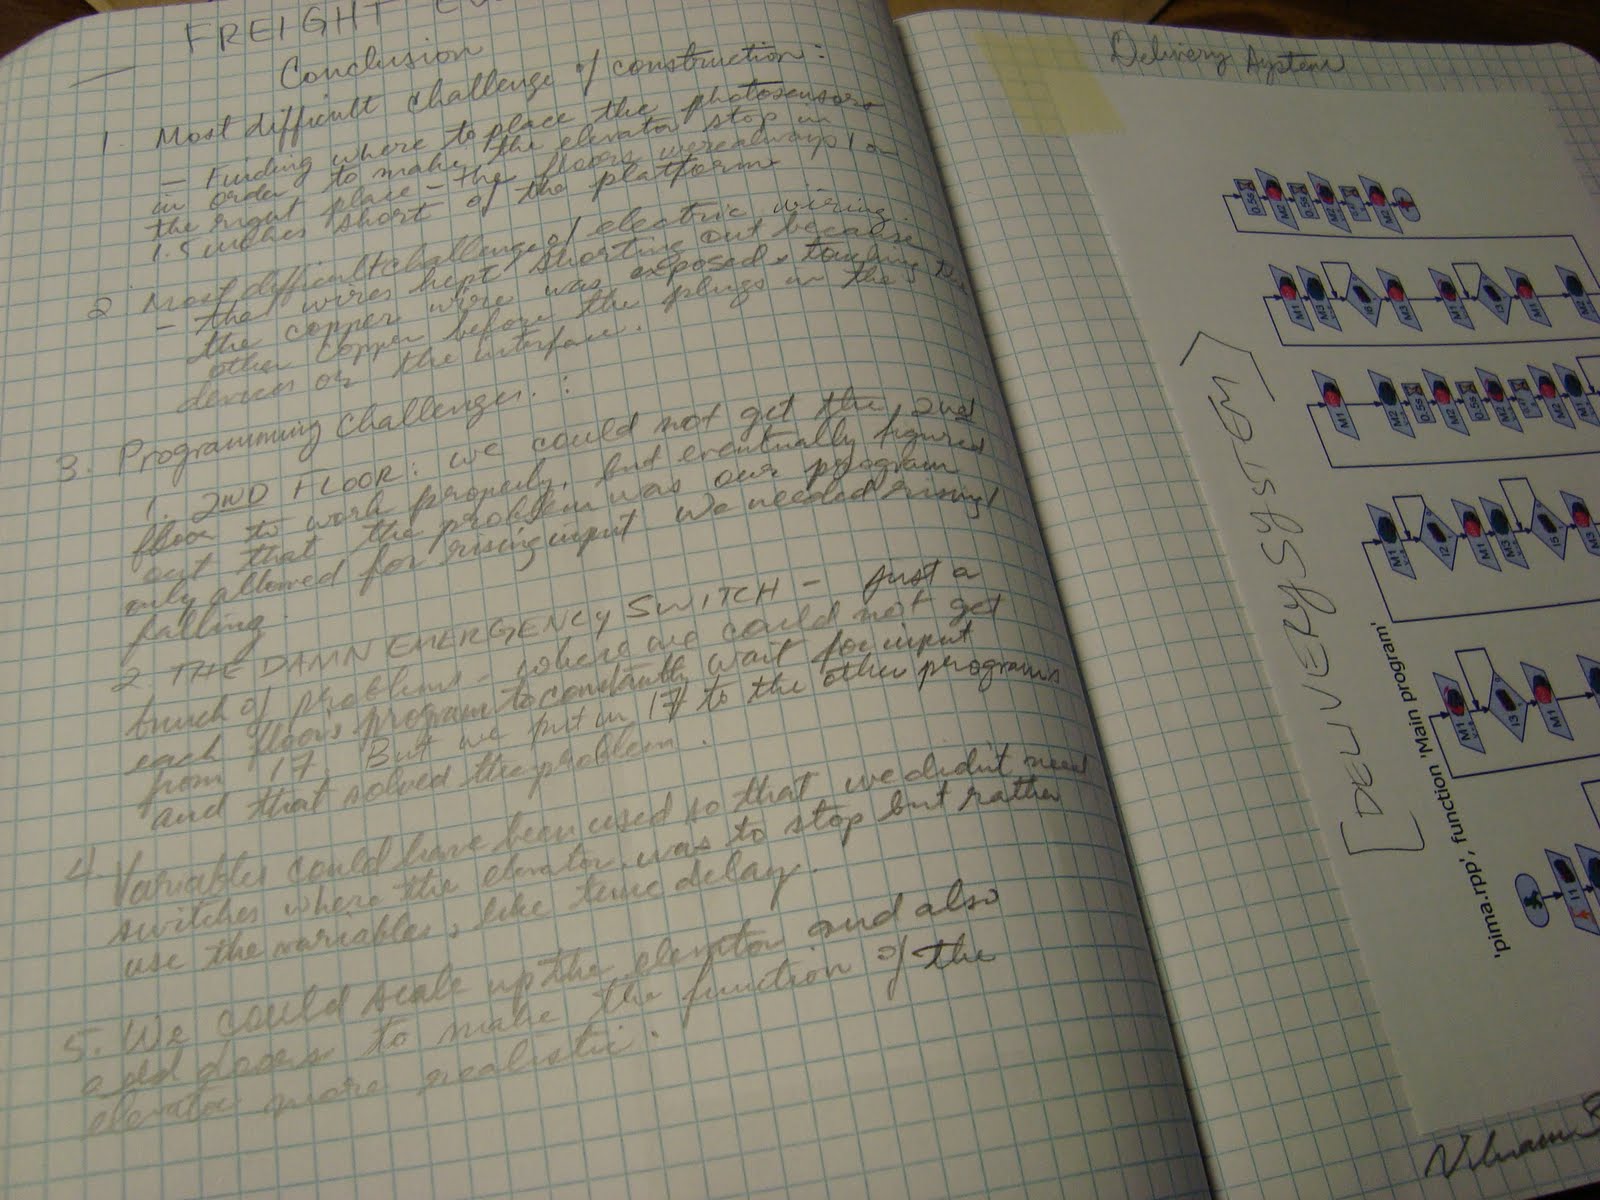 FREIGHT
Conclusion
1. Most difficult challenge of construction:
- Finding where to place the photosensors
in order to make the elevator stop in
the right place - the floors were always 1 or
1.5 inches short of the platform.
2 Most difficult challenge of electric wiring.
- that wires kept shorting out because
the copper wire was exposed & touching the
other copper before the plugs in the
devices or the interface.
3. Programming Challenges:
1. 2ND FLOOR: we could not get the 2nd
floor to work properly, but eventually figured
out that the problem was our program
only allowed for rising input we needed rising/
falling.
2 THE DAMN EMERGENCY SWITCH - Just a
bunch of problems - where we could not get
each floor's program to constantly wait for input
from I7. But we put in I7 to the other programs
and that solved the problem.
4. Variables could have been used so that we didn't need
switches where the elevator was to stop but rather
use the variables, like time delay.
5. We could scale up the elevator and also
add doors to make the function of the
elevator more realistic.
Delivery System
[DELIVERY SYSTEM]
'pima.rpp', Function 'Main program'
0.5s M2 0.5s M2 M2
M1 M3 I6 M3 M1 I3 M1 M2
M1 M2 0.5s M2 0.5s M2 M2 M1
M1 I2 M1 M3 I5 M3
M1 I3 M1
I1